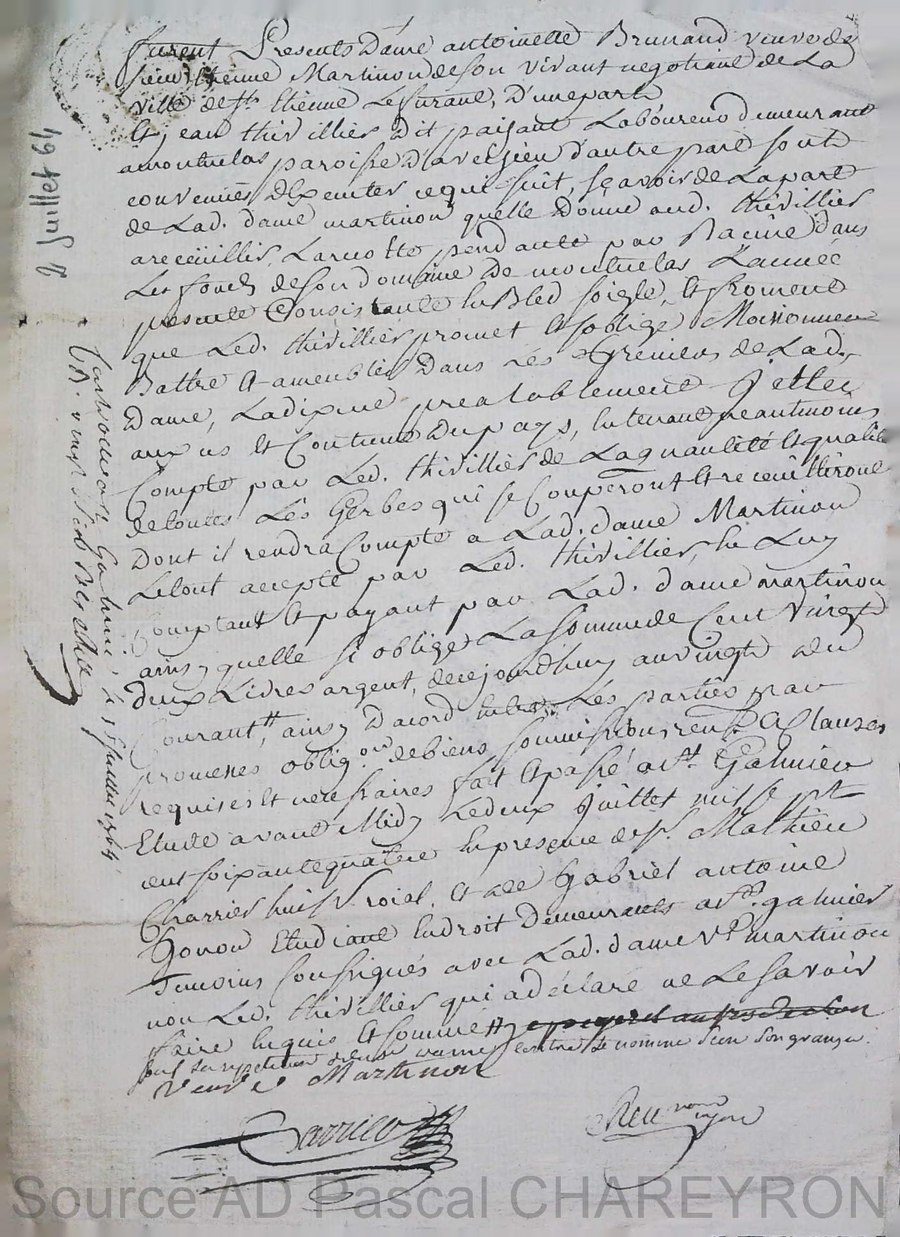 furent Presents Dame antoinette Brunand veuve de
sieur Etienne Martinon de son vivant negotiant de La
ville de St. Etienne Le furant, D'une part
Et jean thivillier dit paisant Laboureur demeurant
a montuclas paroisse d'aveisieu d'autre part sont
convenües D'Executer ce qui suit, sçavoir de La part
de Lad. dame martinon quelle Donne aud. thivillier
a receüillir, La recotte pendante par Racine dans
Les fonds de son domaine de montuclas L'année
presente Consistante en Bled soigle, et froment
que Led. thivillier promet et s'oblige Moisonner
Battre et ameubler Dans Les Greniers de Lad.
Dame, La dixme prealablement
aux us et Coutume Du pays, en tenant neantmoins
Compte par Led. thivillier de La quantité et qualité
de toutes Les Gerbes qui se Couperont et receüilliront
Dont il rendra Compte a Lad. dame Martinon
Le tout accepté par Led. thivillier, en Luy
Comptant et payant par Lad. dame martinon
ainsy quelle s'i oblige La somme de Cent vingt
deux Livres argent, de ce jourdhuy au vingt du
Courantt, ainsy D'acord Les parties par
promesses obligon de biens soumissions renon et Clauzes
requises et necessaires fait et passé a st. Galmier
Etude avant Midy Le deux juillet mil sept
cent soixante quatre en presence de sr. Mathieu
Charrier huissr. roial, et de Gabriel antoine
Gonon Etudiant en droit Demeurants a st. galmier
Temoins soussignés avec Lad. dame ve. martinon
non Led. thivillier qui a déclaré ne Le savoir
faire enquis et sommé
sauf sa repetition contre Le nommé son granger
veuve Martinon
Charrier
2 Juillet 64
Controllé a St. Galmier le 1764